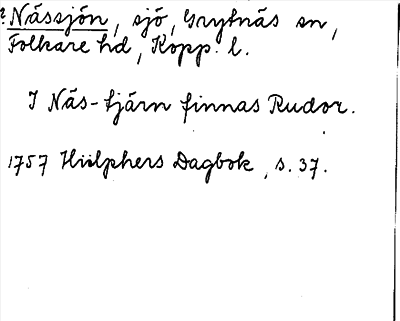 ? Nässjön, sjö, Grytnäs sn,
Folkare hd, Kopp. l.
I Näs-tjärn finnas Rudor.
1757 Hülphers Dagbok, s. 37.